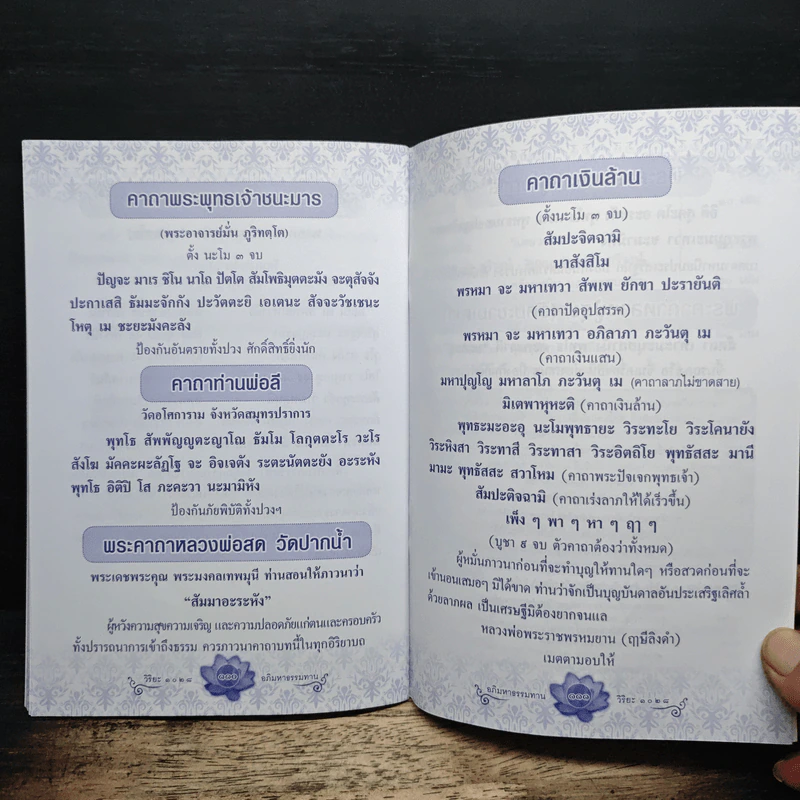 คาถาพระพุทธเจ้าชนะมาร
(พระอาจารย์มั่น ภูริทตฺโต)
ตั้ง นะโม ๓ จบ
ปัญจะ มาเร ชิโน นาโถ ปัตโต สัมโพธิมุตตะมัง จะตุสัจจัง
ปะกาเสสิ ธัมมะจักกัง ปะวัตตะยิ เอเตนะ สัจจะวัชเชนะ
โหตุ เม ชะยะมังคะลัง
ป้องกันอันตรายทั้งปวง ศักดิ์สิทธิ์ยิ่งนัก
คาถาท่านพ่อลี
วัดอโศการาม จังหวัดสมุทรปราการ
พุทโธ สัพพัญญูตะญาโณ ธัมโม โลกุตตะโร วะโร
สังโฆ มัคคะผะลัฏโฐ จะ อิจเจตัง ระตะนัตตะยัง อะระหัง
พุทโธ อิติปิ โส ภะคะวา นะมามิหัง
ป้องกันภัยพิบัติทั้งปวงฯ
พระคาถาหลวงพ่อสด วัดปากน้ำ
พระเดชพระคุณ พระมงคลเทพมุนี ท่านสอนให้ภาวนาว่า
“สัมมาอะระหัง”
ผู้หวังความสุขความเจริญ และความปลอดภัยแก่ตนและครอบครัว
ทั้งปรารถนาการเข้าถึงธรรม ควรภาวนาคาถาบทนี้ในทุกอิริยาบถ
วิริยะ ๑๐๒๘
อภิมหาธรรมทาน
คาถาเงินล้าน
(ตั้งนะโม ๓ จบ)
สัมปะจิตฉามิ
นาสังสิโม
พรหมา จะ มหาเทวา สัพเพ ยักขา ปะรายันติ
(คาถาปัดอุปสรรค)
พรหมา จะ มหาเทวา อภิลาภา ภะวันตุ เม
(คาถาเงินแสน)
มหาปุญโญ มหาลาโภ ภะวันตุ เม (คาถาลาภไม่ขาดสาย)
มิเตพาหุหะติ (คาถาเงินล้าน)
พุทธะมะอะอุ นะโมพุทธายะ วิระทะโย วิระโคนายัง
วิระหิงสา วิระทาสี วิระทาสา วิระอิตถิโย พุทธัสสะ มานี
มามะ พุทธัสสะ สวาโหม (คาถาพระปัจเจกพุทธเจ้า)
สัมปะติจฉามิ (คาถาเร่งลาภให้ได้เร็วขึ้น)
เพ็ง ๆ พา ๆ หา ๆ ฤา ๆ
(บูชา ๙ จบ ตัวคาถาต้องว่าทั้งหมด)
ผู้หมั่นภาวนาก่อนที่จะทำบุญให้ทานใดๆ หรือสวดก่อนที่จะ
เข้านอนเสมอๆ มิได้ขาด ท่านว่าจักเป็นบุญบันดาลอันประเสริฐเลิศล้ำ
ด้วยลาภผล เป็นเศรษฐีมิต้องยากจนแล
หลวงพ่อพระราชพรหมยาน (ฤๅษีลิงดำ)
เมตตามอบให้
อภิมหาธรรมทาน
วิริยะ ๑๐๒๘